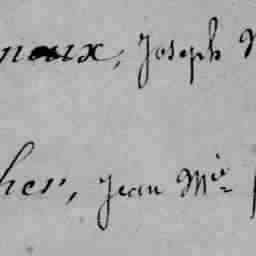 noux, Joseph
her, Jean Mie